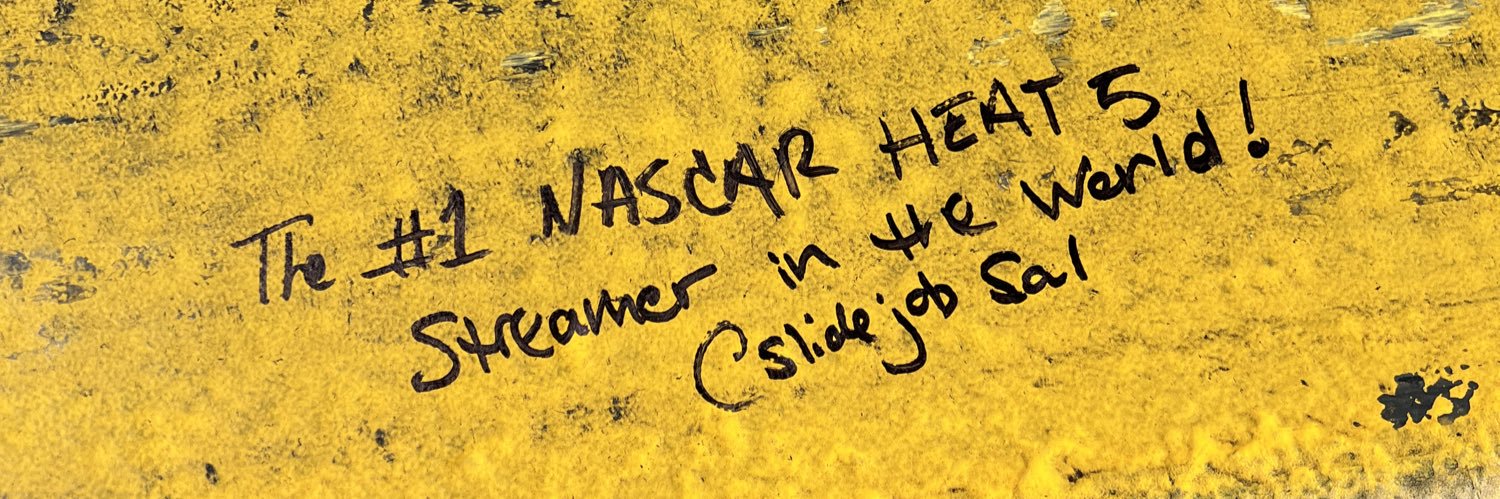 The #1 NASCAR HEAT 5
Streamer in the World!
(slidejob Sal